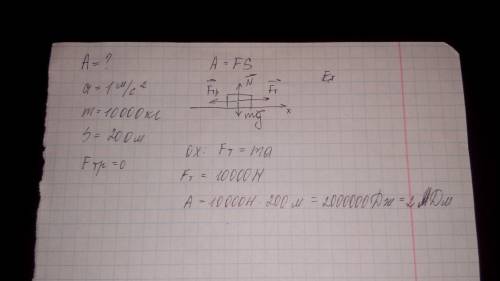 A = ?
a = 1 м/с²
m = 10000 кг
S = 200 м
Fтр = 0
A = FS
N
Fтр
Fт
mg
x
Fт
ox: Fт = ma
Fт = 10000 Н
A = 10000 Н · 200 м = 2000000 Дж = 2 МДж